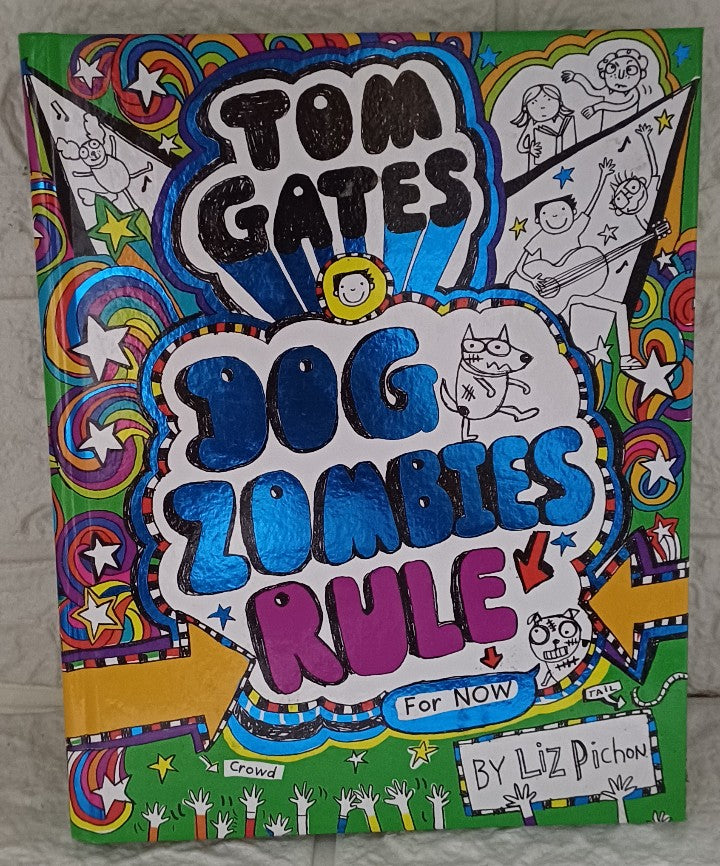 TOM
GATES
DOG
ZOMBIES
RULE
For NOW
TAIL
BY Liz Pichon
Crowd